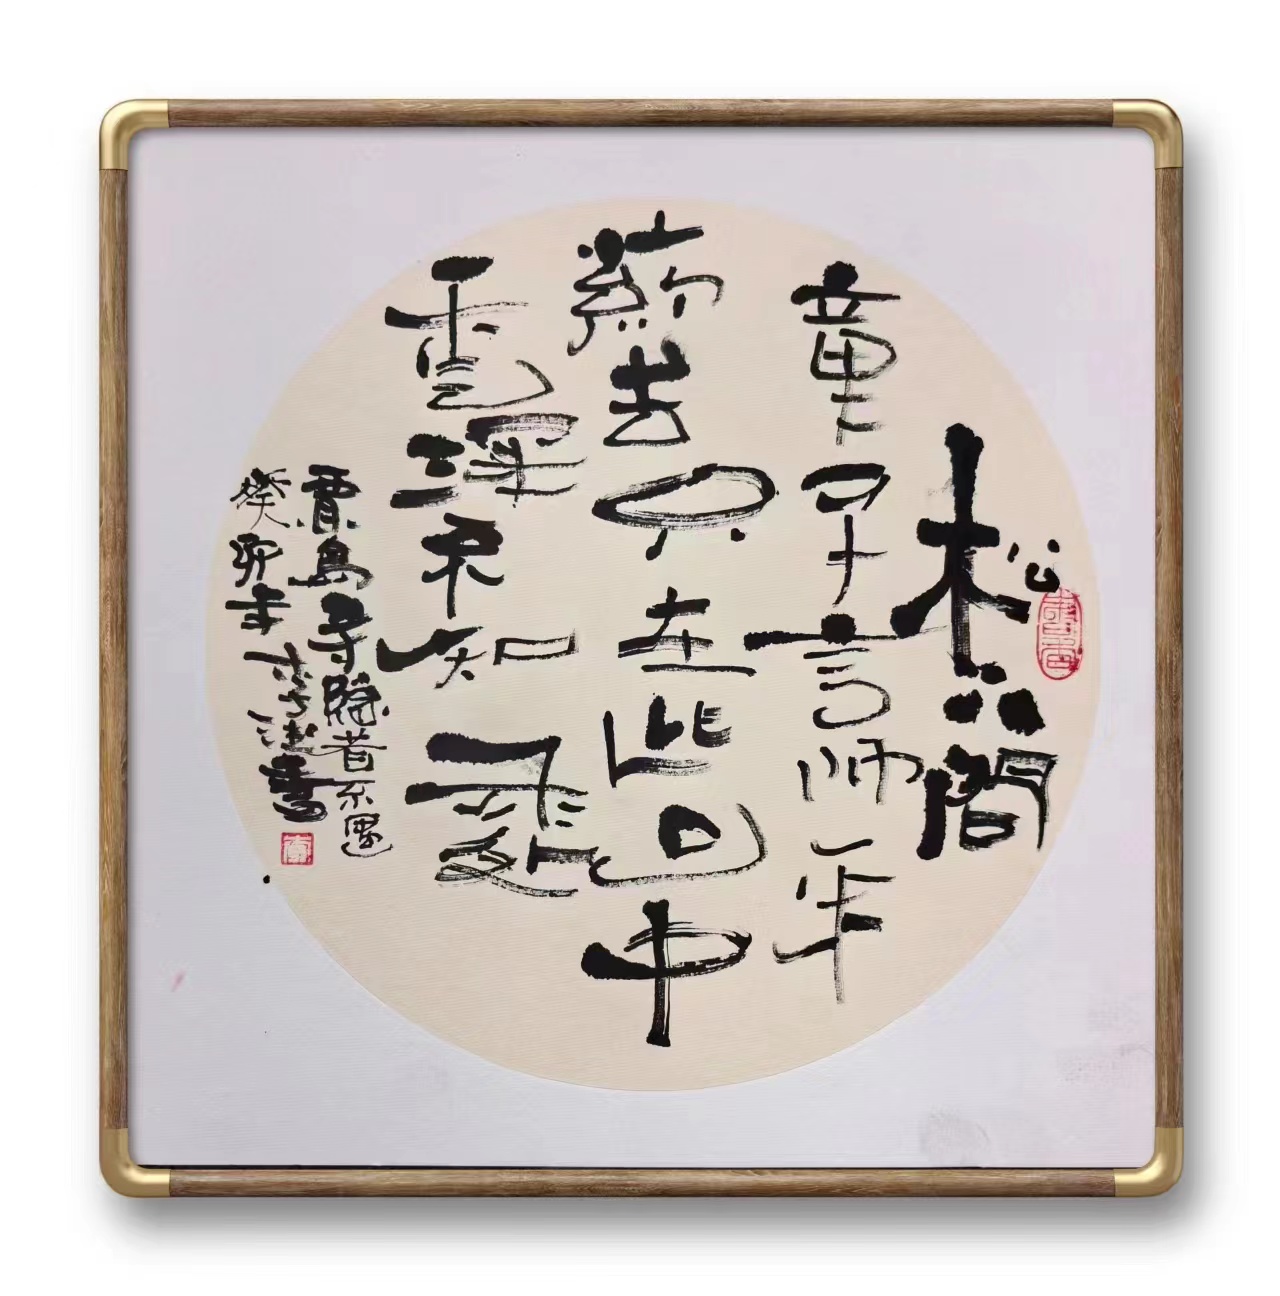 松下問
童子言師采
药去只在此山中
雲深不知處
賈島尋隱者不遇
癸卯年李書